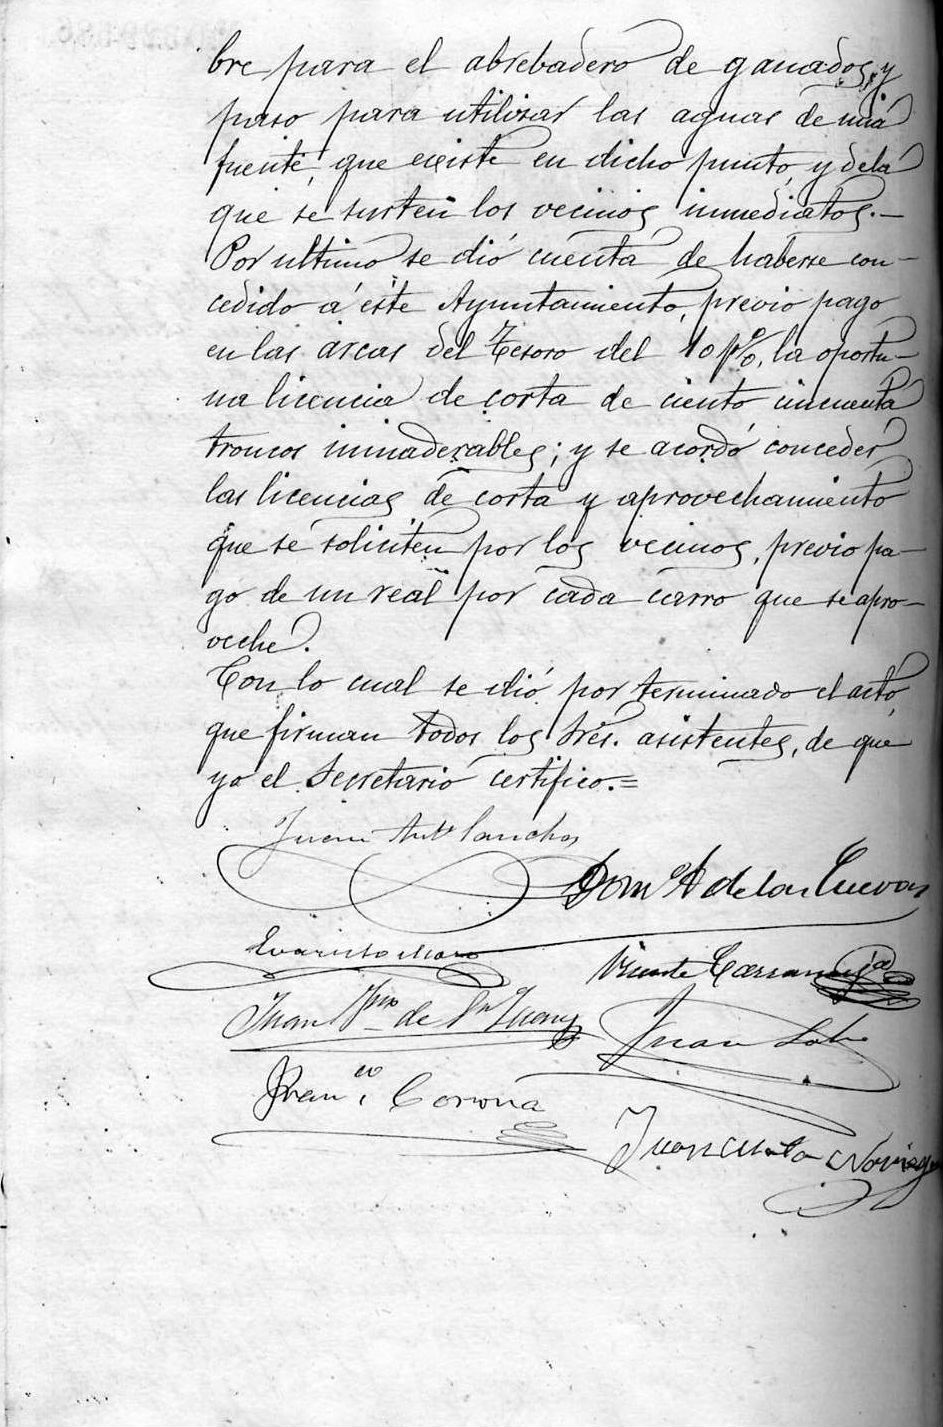 bre para el abrebadero de ganados, y
paso para utilizar las aguas de una
fuente, que existe en dicho punto, y de la
que se surten los vecinos inmediatos.—
Por ultimo se dió cuenta de haberse con-
cedido á éste Ayuntamiento, previo pago
en las arcas del Tesoro del 10 p%, la oportu-
na licencia de corta de ciento cincuenta
troncos inmaderables; y se acordó conceder
las licencias de corta y aprovechamiento
que se soliciten por los vecinos, previo pa-
go de un real por cada carro que se apro-
veche.
Con lo cual se dió por terminado el acto,
que firman todos los Sres. asistentes, de que
yo el Secretario certifico.=
Juan Antº Sanchez
Domº A de las Cuevas
Evaristo
Vicente
Juan de Sn Juan
Juan
Franco Corona
Juan Noriega